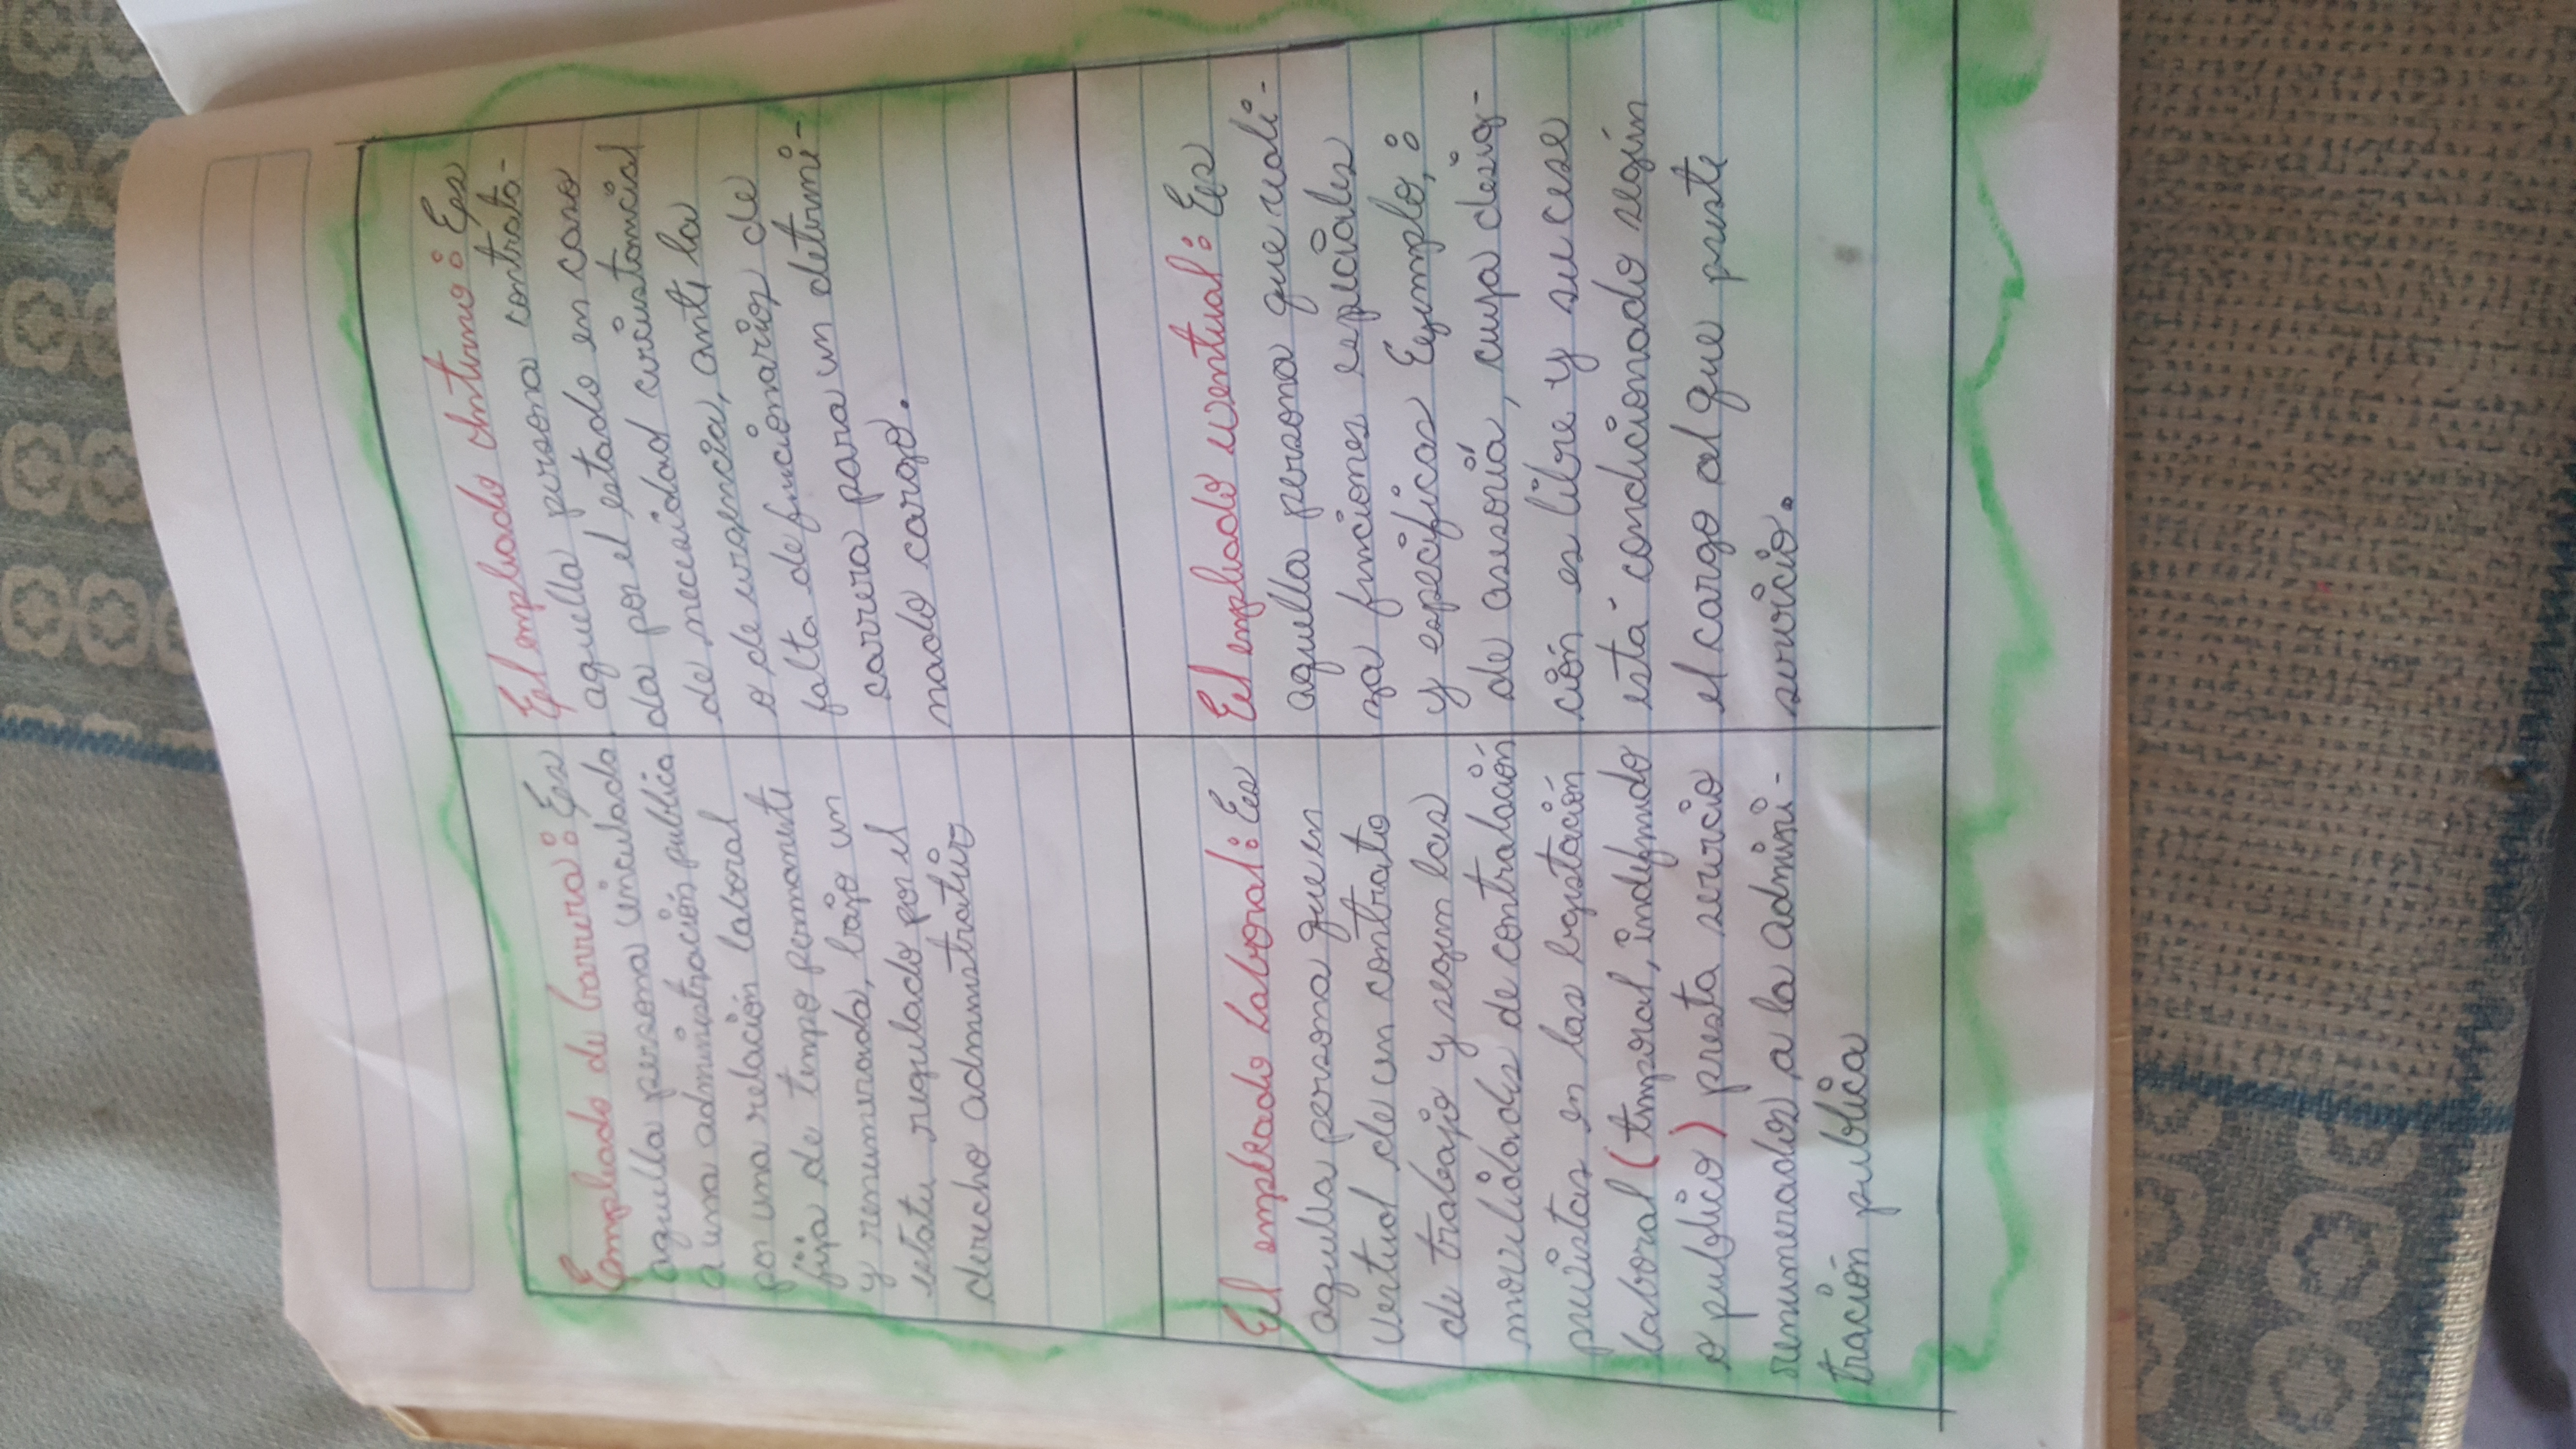 Empleado de Carrera: Es
aquella persona vinculada
a una administración publica
por una relación laboral
fija de tempo permanente
y renumerada, bajo un
estatu regulado por el
derecho admnistrativo
El empleado Interno: Es
aquella persona contrata-
da por el estado en caso
de necesidad circustancial
o de urgencia, ante la
falta de funcionarios de
carrera para un determi-
nado cargo.
El empleado Laboral: Es
aquella persona que en
vertud de un contrato
de trabajo y segun las
modelidades de contratación
previstas en las legistación
laboral (temporal, indefinido
o publico) presta servicio
renumerados a la admini-
tración publica
El empleado eventual: Es
aquella persona que reali-
za funciones especiales
y especificas Ejemplo,:
de asesoría, cuya desig-
ción es libre y su cese
está condicionado según
el cargo al que preste
servicio.